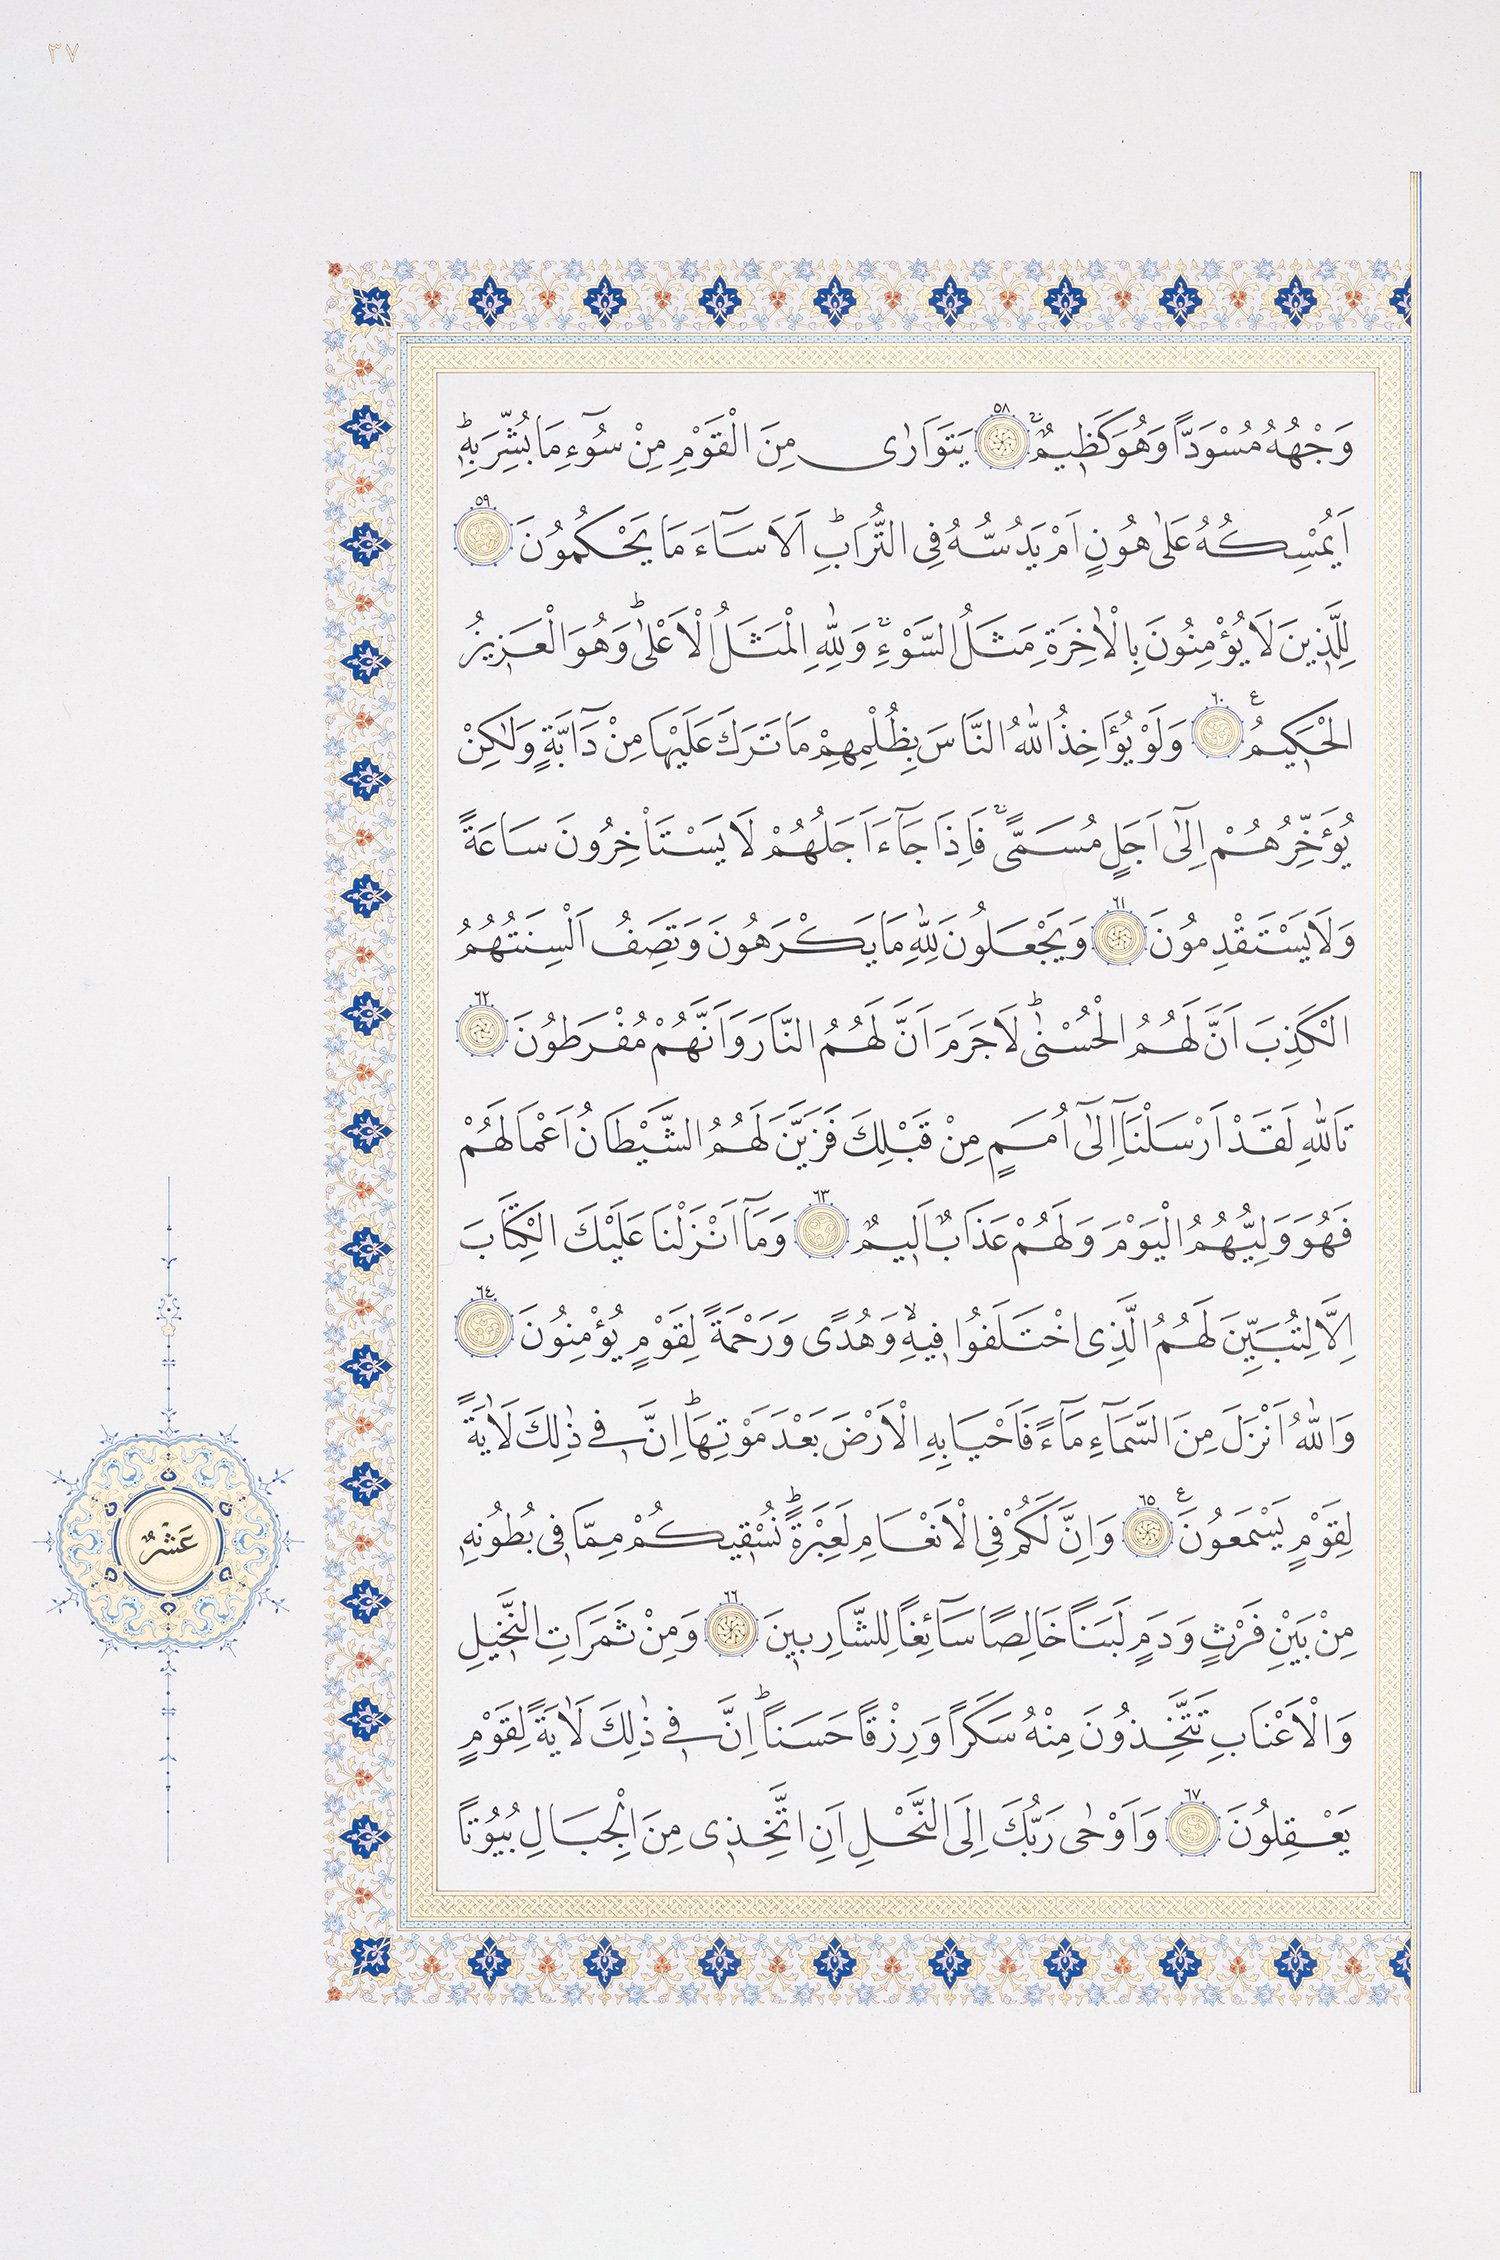 ٣٧
وَجْهُهُ مُسْوَدًّا وَهُوَ كَظِيمٌۚ ٥٨ يَتَوَارٰى مِنَ الْقَوْمِ مِنْ سُوٓءِ مَا بُشِّرَ بِهٖؕ
اَيُمْسِكُهُ عَلٰى هُونٍ اَمْ يَدُسُّهُ فِى التُّرَابِؕ اَلَا سَٓاءَ مَا يَحْكُمُونَ ٥٩
لِلَّذِينَ لَا يُؤْمِنُونَ بِالْاٰخِرَةِ مَثَلُ السَّوْءِۚ وَلِلّٰهِ الْمَثَلُ الْاَعْلٰىؕ وَهُوَ الْعَزِيزُ
الْحَكِيمُ ࣖ ٦٠ وَلَوْ يُؤَاخِذُ اللّٰهُ النَّاسَ بِظُلْمِهِمْ مَا تَرَكَ عَلَيْهَا مِنْ دَٓابَّةٍ وَلٰكِنْ
يُؤَخِّرُهُمْ اِلٰٓى اَجَلٍ مُسَمًّىۚ فَاِذَا جَٓاءَ اَجَلُهُمْ لَا يَسْتَأْخِرُونَ سَاعَةً
وَلَا يَسْتَقْدِمُونَ ٦١ وَيَجْعَلُونَ لِلّٰهِ مَا يَكْرَهُونَ وَتَصِفُ اَلْسِنَتُهُمُ
الْكَذِبَ اَنَّ لَهُمُ الْحُسْنٰىؕ لَا جَرَمَ اَنَّ لَهُمُ النَّارَ وَاَنَّهُمْ مُفْرَطُونَ ٦٢
تَاللّٰهِ لَقَدْ اَرْسَلْنَٓا اِلٰٓى اُمَمٍ مِنْ قَبْلِكَ فَزَيَّنَ لَهُمُ الشَّيْطَانُ اَعْمَالَهُمْ
فَهُوَ وَلِيُّهُمُ الْيَوْمَ وَلَهُمْ عَذَابٌ اَلِيمٌ ٦٣ وَمَٓا اَنْزَلْنَا عَلَيْكَ الْكِتَابَ
اِلَّا لِتُبَيِّنَ لَهُمُ الَّذِى اخْتَلَفُوا فِيهِۙ وَهُدًى وَرَحْمَةً لِقَوْمٍ يُؤْمِنُونَ ٦٤
وَاللّٰهُ اَنْزَلَ مِنَ السَّمَٓاءِ مَٓاءً فَاَحْيَا بِهِ الْاَرْضَ بَعْدَ مَوْتِهَاؕ اِنَّ فِى ذٰلِكَ لَاٰيَةً
لِقَوْمٍ يَسْمَعُونَ ࣖ ٦٥ وَاِنَّ لَكُمْ فِى الْاَنْعَامِ لَعِبْرَةًؕ نُسْقِيكُمْ مِمَّا فِى بُطُونِهٖ
مِنْ بَيْنِ فَرْثٍ وَدَمٍ لَبَنًا خَالِصًا سَٓائِغًا لِلشَّارِبِينَ ٦٦ وَمِنْ ثَمَرَاتِ النَّخِيلِ
وَالْاَعْنَابِ تَتَّخِذُونَ مِنْهُ سَكَرًا وَرِزْقًا حَسَنًاؕ اِنَّ فِى ذٰلِكَ لَاٰيَةً لِقَوْمٍ
يَعْقِلُونَ ٦٧ وَاَوْحٰى رَبُّكَ اِلَى النَّحْلِ اَنِ اتَّخِذِى مِنَ الْجِبَالِ بُيُوتًا
عَشْرٌ